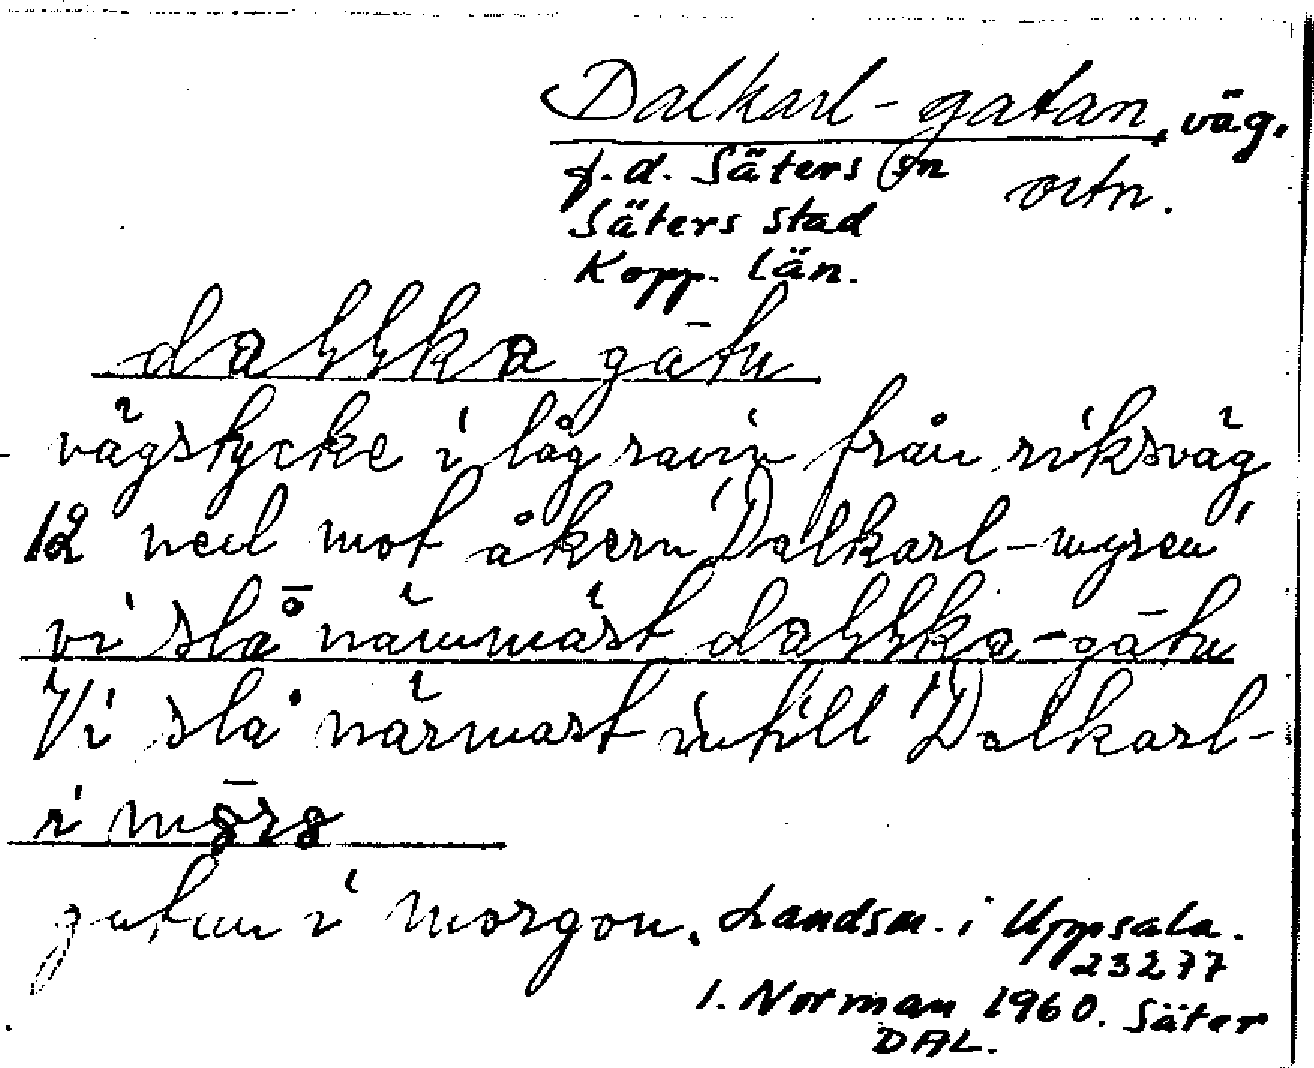 Dalkarl-gatan, väg.
f.d. Säters sn ortn.
Säters stad
Kopp. län.
dallka gātu
vägstycke i låg ravin från riksväg
12 ned mot åkern Dalkarl-myren
vi slå närmäst dallka-gātu
Vi slå närmast intill Dalkarl-
i
gatan i morgon. Landsm. i Uppsala.
23277
I. Norman 1960. Säter
DAL.